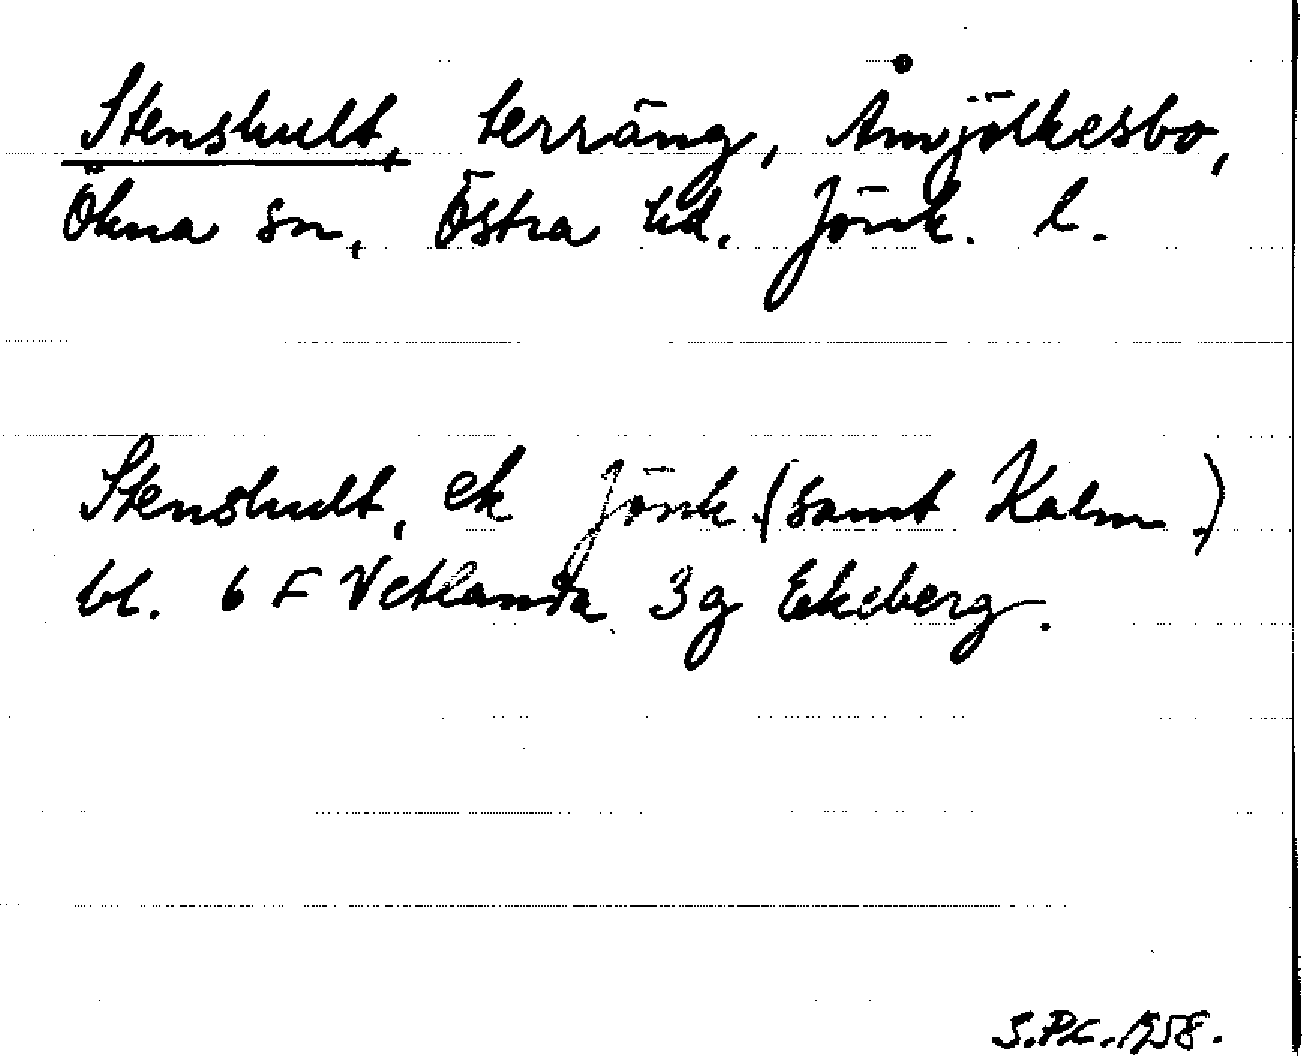 Stenshult, terräng, Åmjölkesbo,
Ökna sn, Östra hd. Jönk. l.
Stenshult, ek Jönk. (samt Kalm.)
bl. 6 F Vetlanda 3g Ekeberg.
1958.